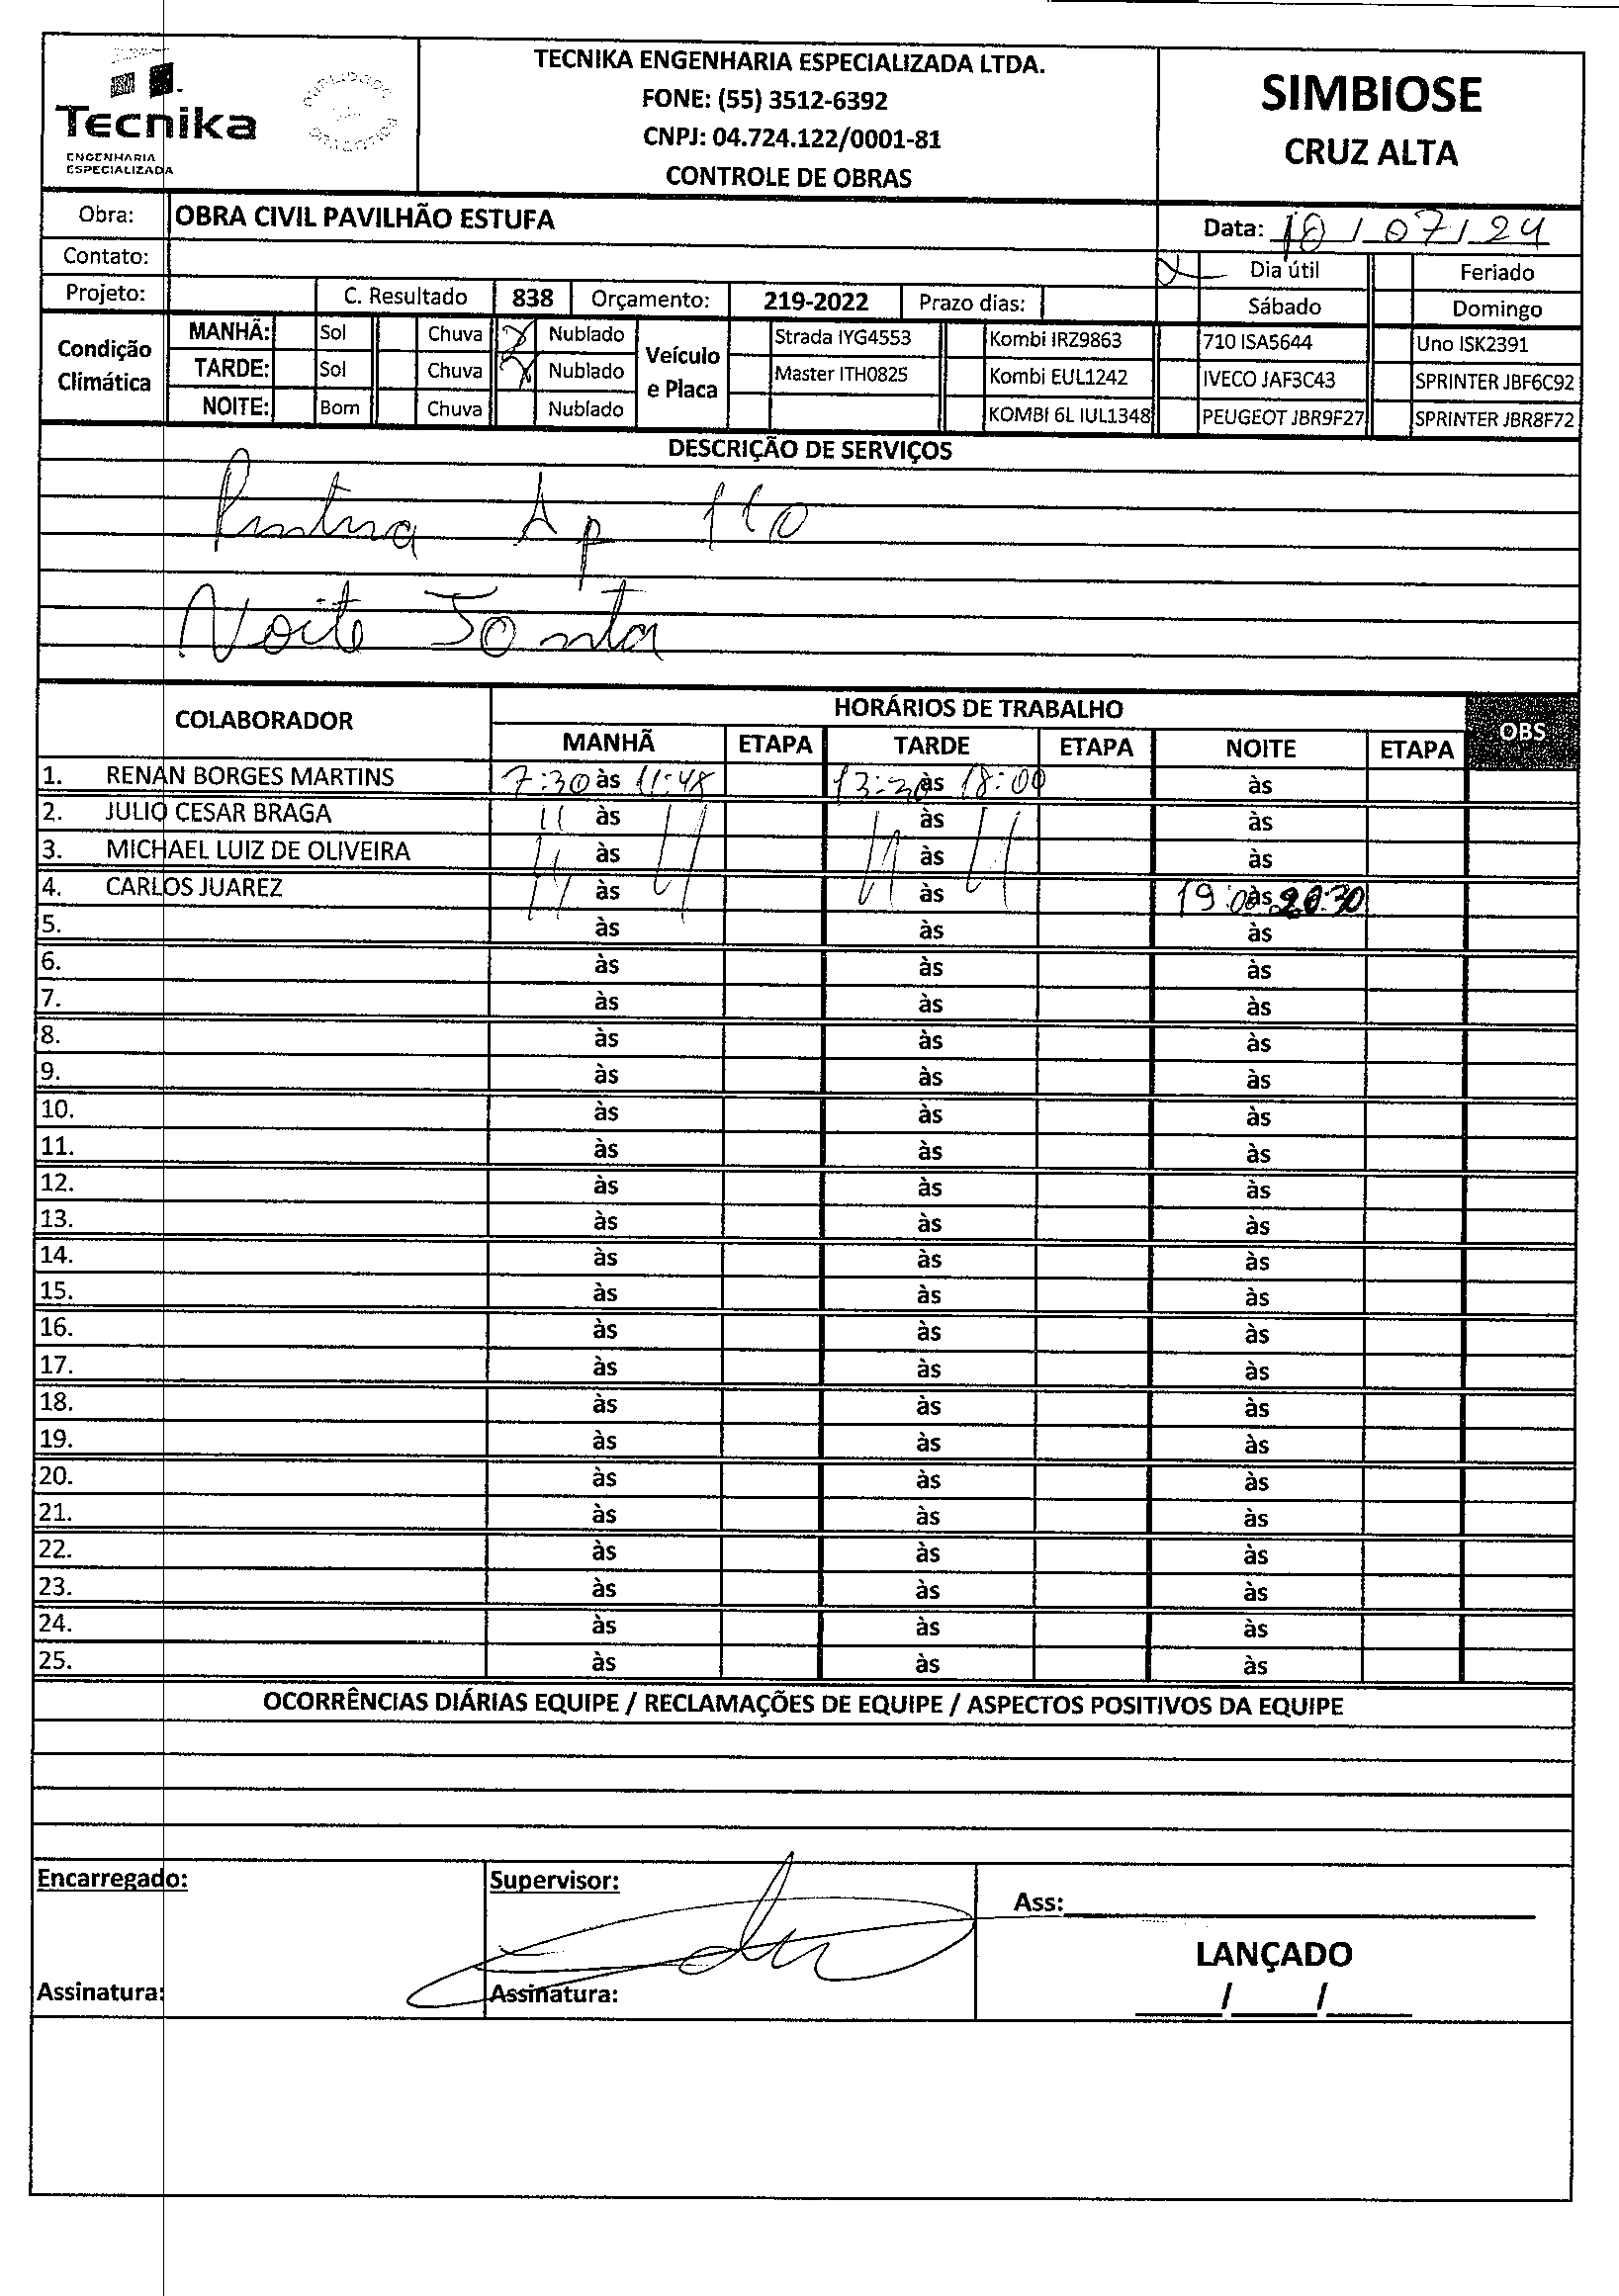 TECNIKA ENGENHARIA ESPECIALIZADA LTDA.
FONE: (55) 3512-6392
CNPJ: 04.724.122/0001-81
CONTROLE DE OBRAS
Tecnika
ENGENHARIA
ESPECIALIZADA
SIMBIOSE
CRUZ ALTA
Obra: OBRA CIVIL PAVILHÃO ESTUFA
Data: 10 / 07 / 24
Contato:
Dia útil Feriado
Projeto: C. Resultado 838 Orçamento: 219-2022 Prazo dias:
Sábado Domingo
Condição Climática
MANHÃ: Sol Chuva X Nublado
TARDE: Sol Chuva X Nublado
NOITE: Bom Chuva Nublado
Veículo e Placa
Strada IYG4553 Kombi IRZ9863 710 ISA5644 Uno ISK2391
Master ITH0825 Kombi EUL1242 IVECO JAF3C43 SPRINTER JBF6C92
KOMBI 6L IUL1348 PEUGEOT JBR9F27 SPRINTER JBR8F72
DESCRIÇÃO DE SERVIÇOS
Pintura Ap 110
Noite Janta
COLABORADOR HORÁRIOS DE TRABALHO OBS
MANHÃ ETAPA TARDE ETAPA NOITE ETAPA
1. RENAN BORGES MARTINS 7:30 às 11:48 13:30 às 18:00 às
2. JULIO CESAR BRAGA 11 às 11 11 às 11 às
3. MICHAEL LUIZ DE OLIVEIRA 11 às 11 11 às 11 às
4. CARLOS JUAREZ 11 às 11 11 às 11 19:00 às 20:30
5. às às às
6. às às às
7. às às às
8. às às às
9. às às às
10. às às às
11. às às às
12. às às às
13. às às às
14. às às às
15. às às às
16. às às às
17. às às às
18. às às às
19. às às às
20. às às às
21. às às às
22. às às às
23. às às às
24. às às às
25. às às às
OCORRÊNCIAS DIÁRIAS EQUIPE / RECLAMAÇÕES DE EQUIPE / ASPECTOS POSITIVOS DA EQUIPE
Encarregado: Supervisor: Ass:
LANÇADO
Assinatura: Assinatura: / /